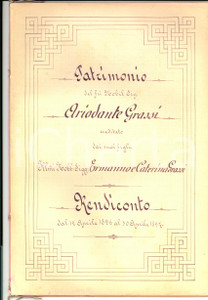 Patrimonio
del fu Nobil Sig.
Ariodante Grassi
ereditato
dai suoi figli
Nobili Sigg. Ermanno e Caterina Grassi
Rendiconto
dal 15 Aprile 1894 al 30 Aprile